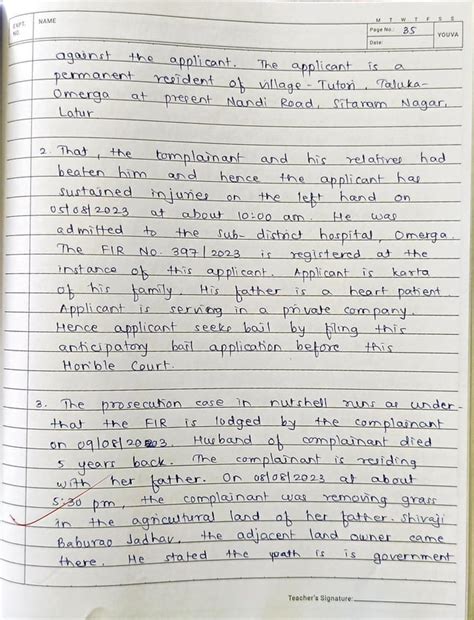 EXPT. NO.
NAME
M T W T F S S
Page No.: 35
YOUVA
Date:
against the applicant. The applicant is a
permanent resident of village - Tutori, Taluka-
Omerga at present Nandi Road, Sitaram Nagar,
Latur
2. That, the complainant and his relatives had
beaten him and hence the applicant has
sustained injuries on the left hand on
05/08/2023 at about 10:00 am. He was
admitted to the sub-district hospital, Omerga.
The FIR No. 397/2023 is registered at the
instance of this applicant. Applicant is karta
of his family. His father is a heart patient.
Applicant is serving in a private company.
Hence applicant seeks bail by filing this
anticipatory bail application before this
Hon'ble Court.
3. The prosecution case in nutshell runs as under-
that the FIR is lodged by the complainant
on 09/08/2023. Husband of complainant died
5 years back. The complainant is residing
with her father. On 08/08/2023 at about
5:30 pm, the complainant was removing grass
in the agricultural land of her father. Shivaji
Baburao Jadhav, the adjacent land owner came
there. He stated the path is is government
Teacher's Signature: